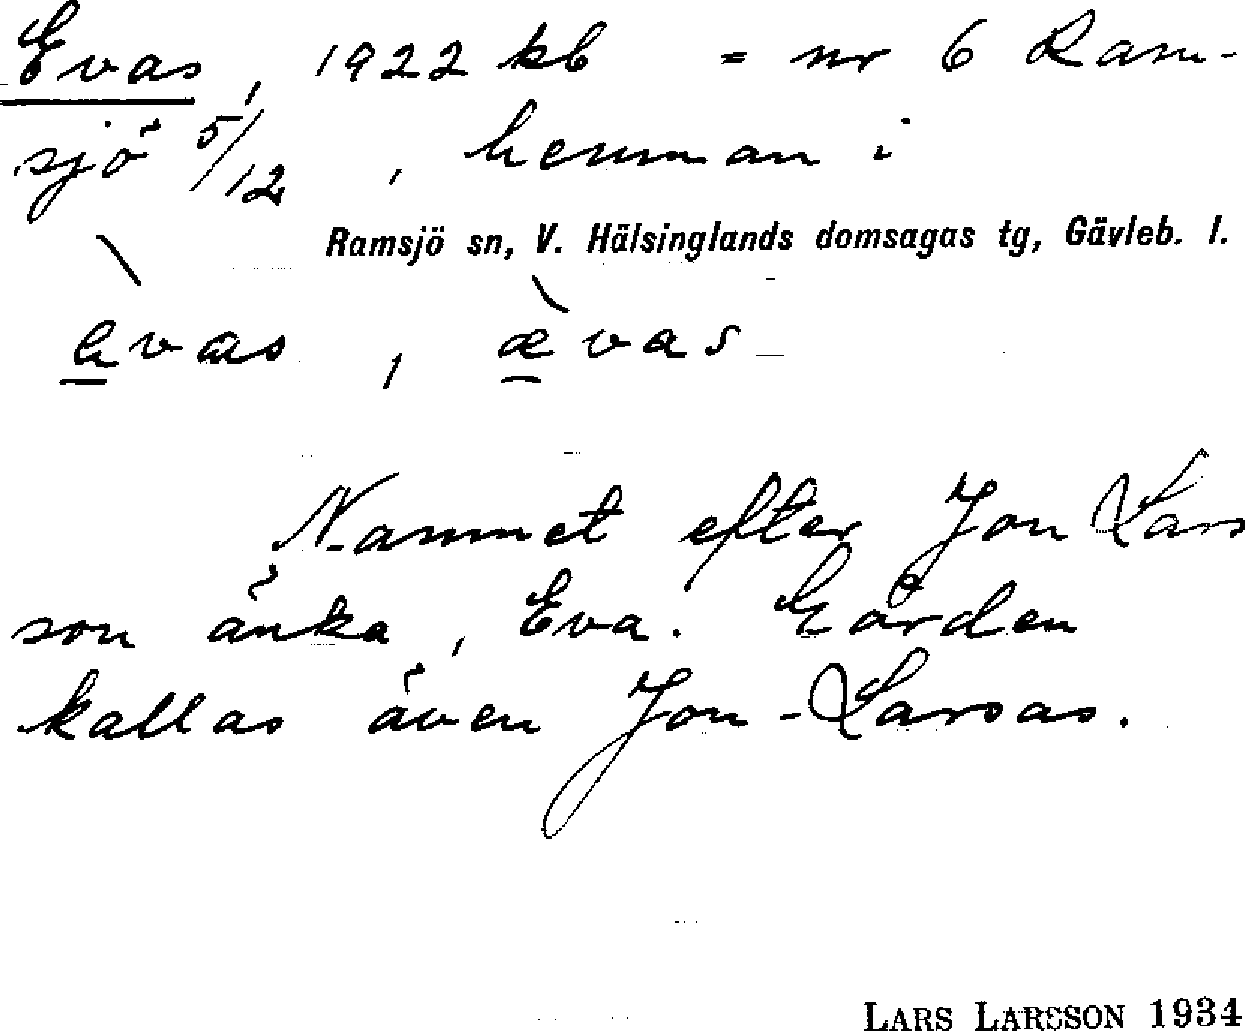 Evas, 1922 kb = nr 6 Ram-
sjö 5/12, hemman i
Ramsjö sn, V. Hälsinglands domsagas tg, Gävleb. l.
èvas, ævas
Namnet efter Jon Lars
son änka, Eva. Gården
kallas även Jon-Larsas.
LARS LARSSON 1934